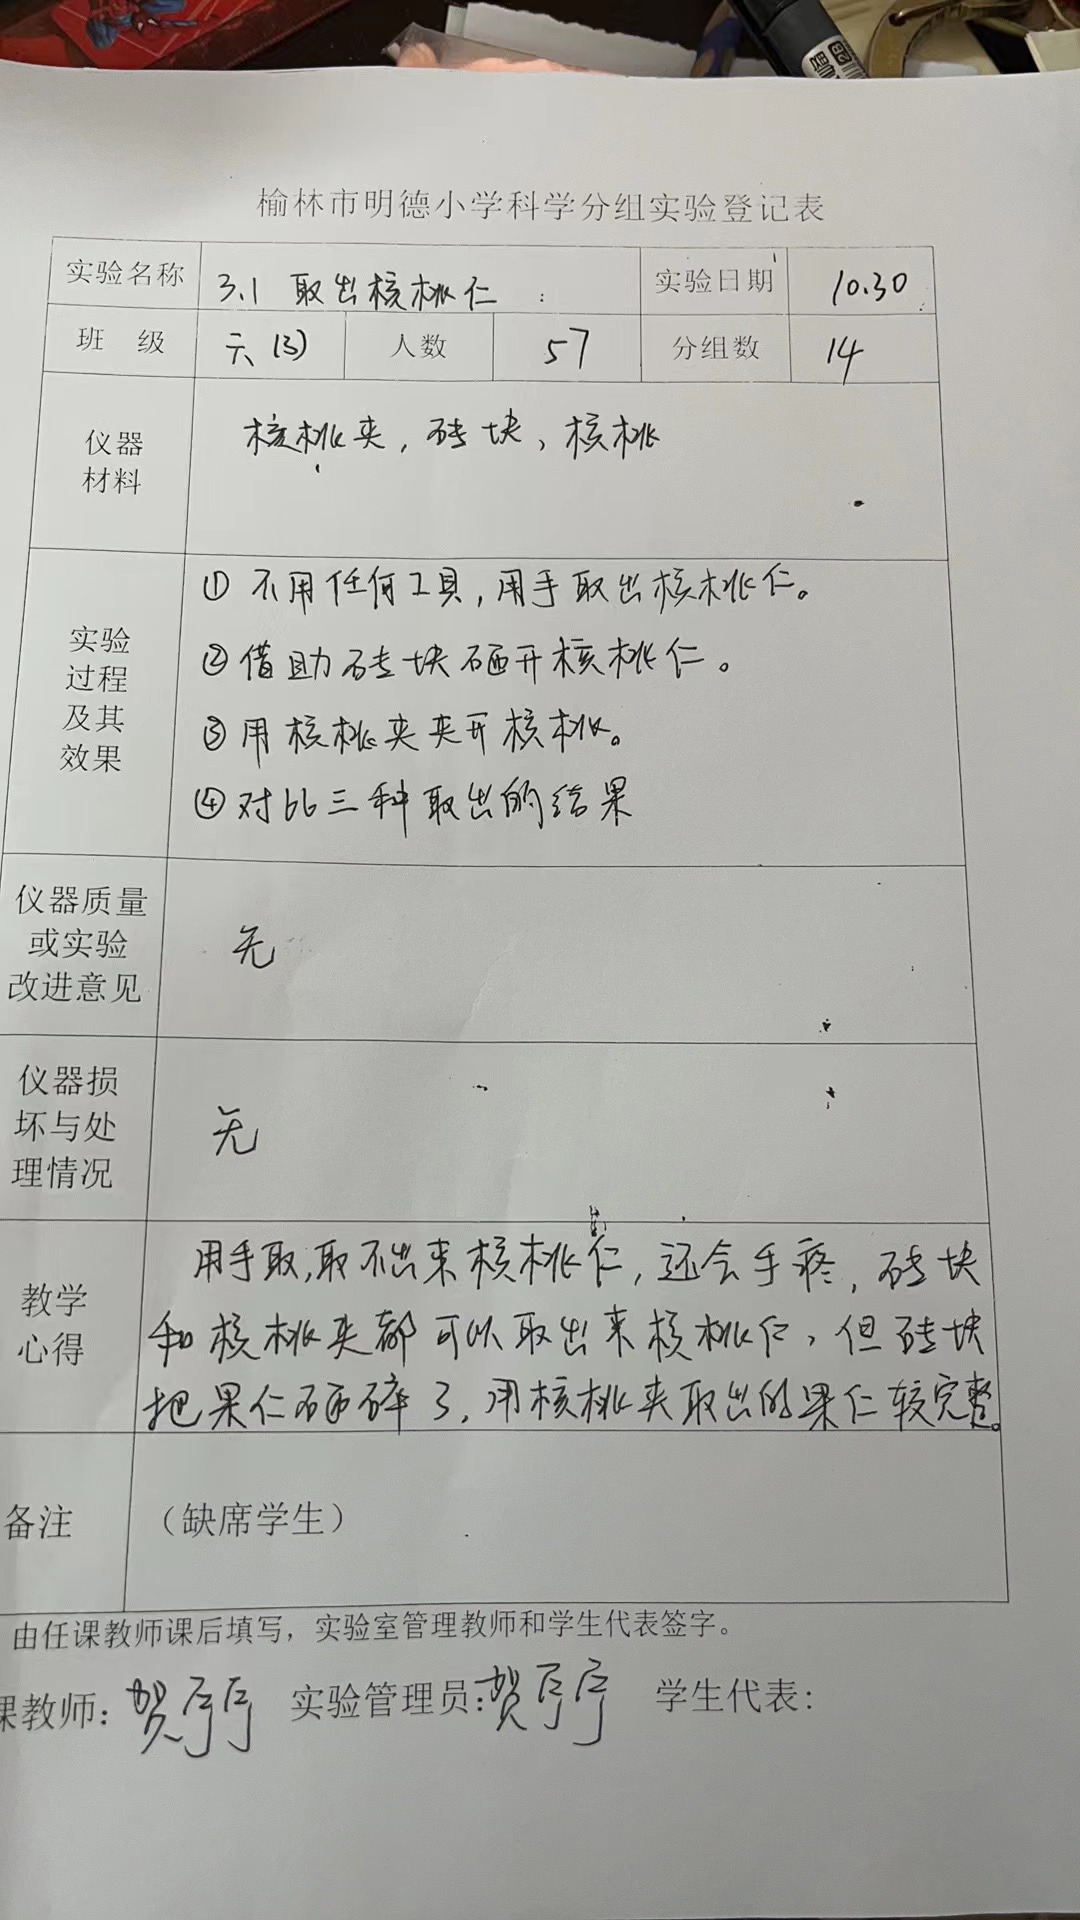 榆林市明德小学科学分组实验登记表
实验名称 3.1 取出核桃仁 实验日期 10.30
班 级 六(3) 人数 57 分组数 14
仪器
材料
核桃夹,砖块,核桃
实验
过程
及其
效果
① 不用任何工具,用手取出核桃仁。
② 借助砖块砸开核桃仁。
③ 用核桃夹夹开核桃。
④ 对比三种取出的结果
仪器质量
或实验
改进意见
无
仪器损
坏与处
理情况
无
教学
心得
用手取,取不出来核桃仁,还会手疼,砖块
和核桃夹都可以取出来核桃仁,但砖块
把果仁砸碎了,用核桃夹取出的果仁较完整。
备注
(缺席学生)
由任课教师课后填写,实验室管理教师和学生代表签字。
课教师: 贺 实验管理员: 贺 学生代表: